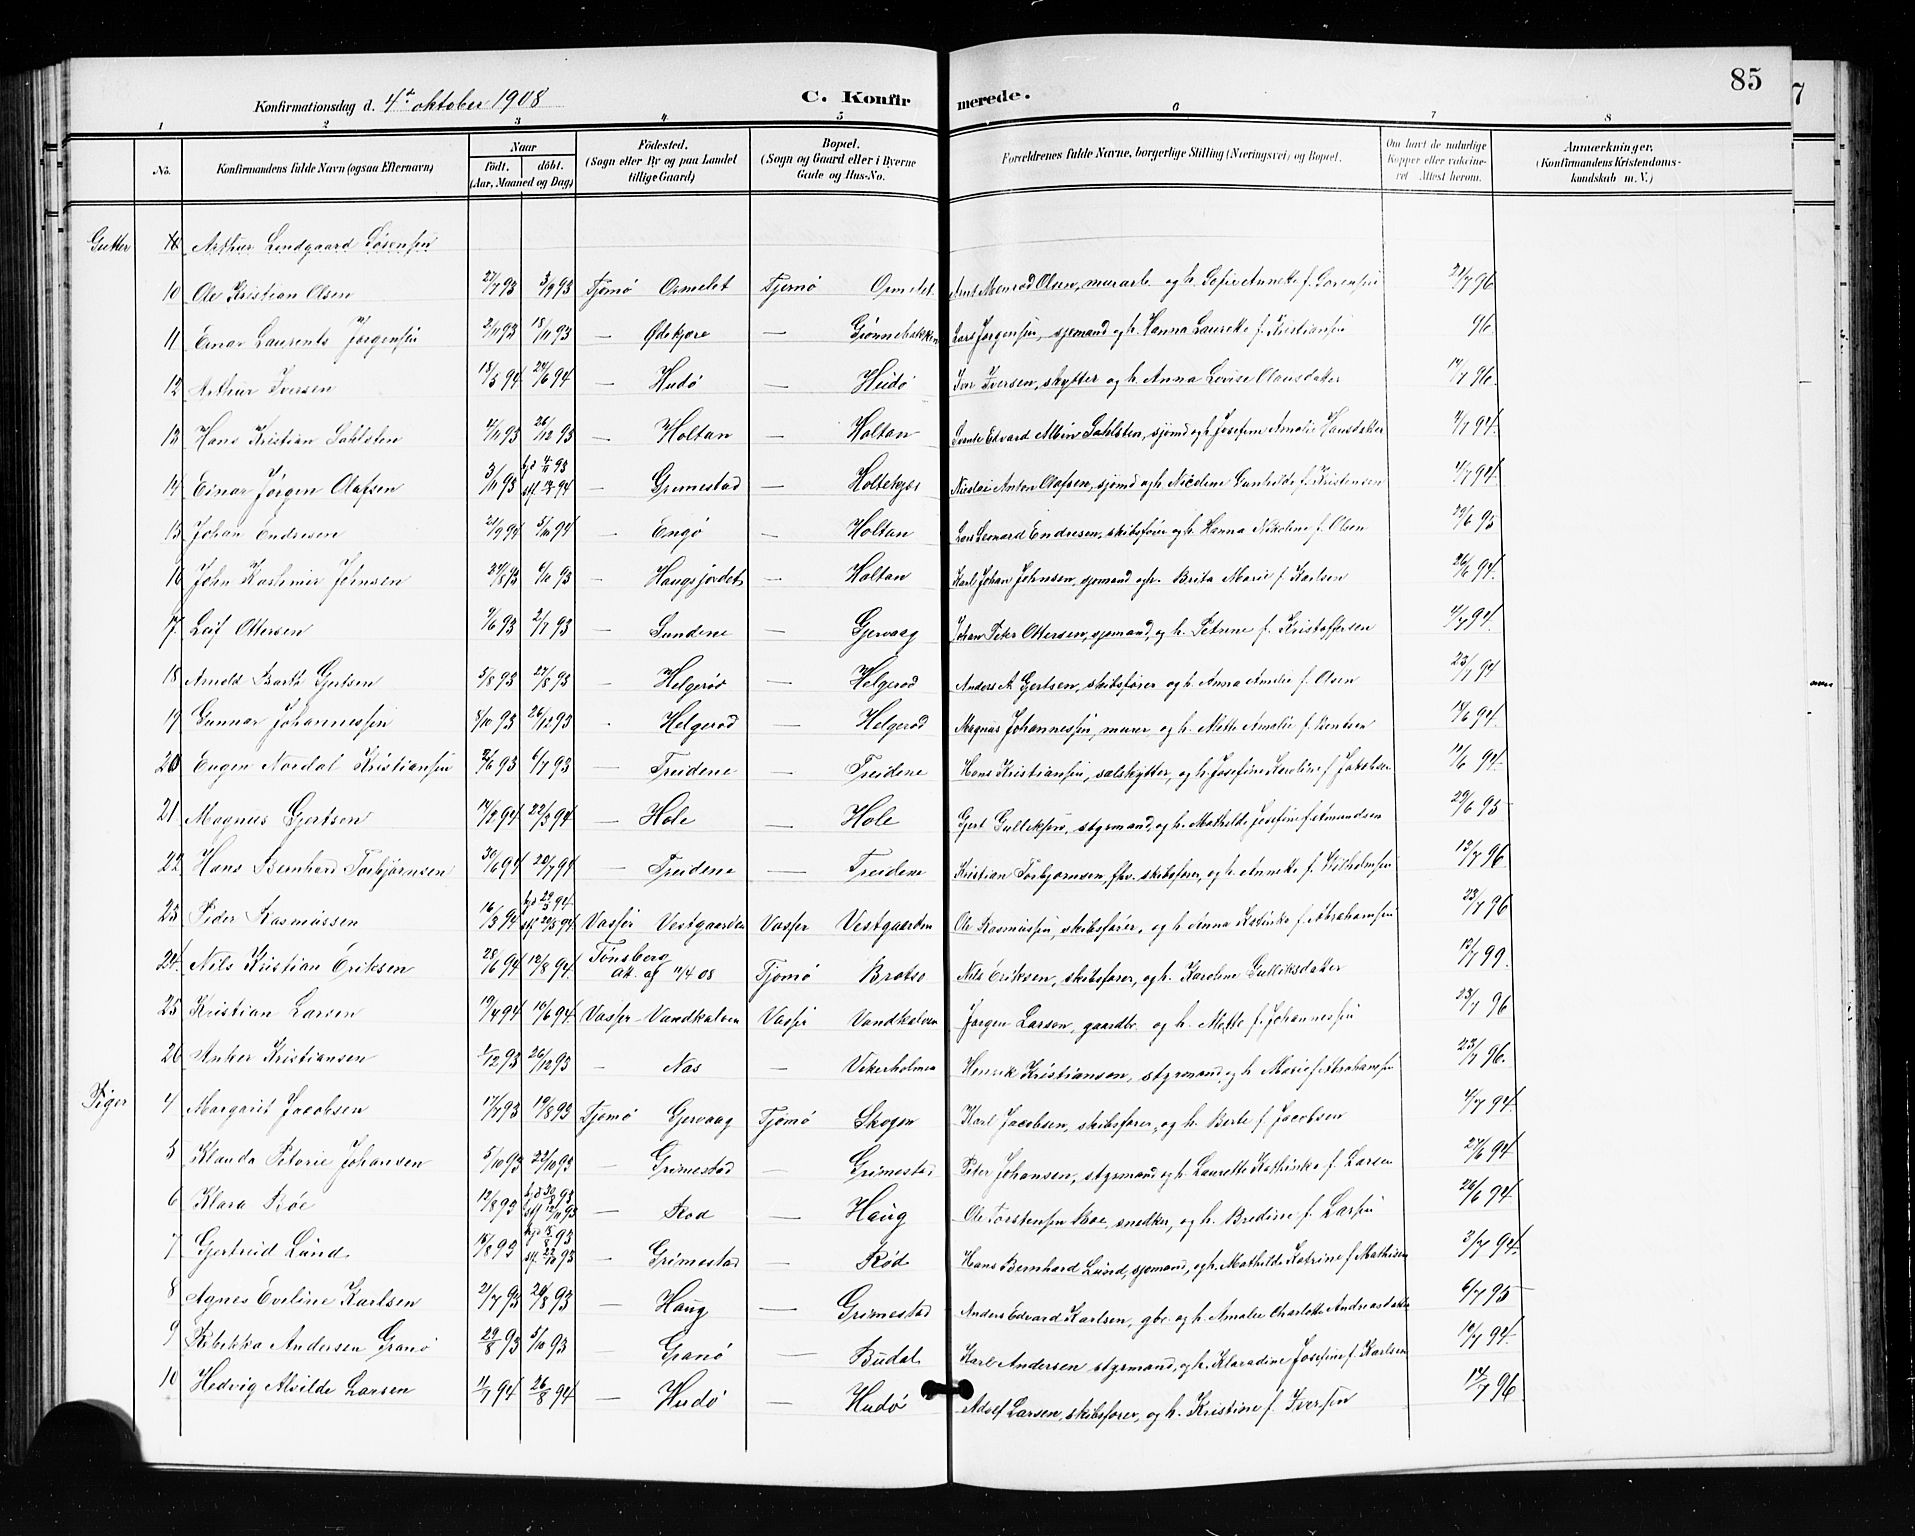 85
Konfirmationsdag d. 4de oktober 1908 C. Konfirmerede.
1 2 3 4 5 6 7 8
No. Konfirmandens fulde Navn (ogsaa Efternavn) Naar födt. döbt. (Aar, Maaned og Dag) Födested. (Sogn eller By og paa Landet tillige Gaard) Bopæl. (Sogn og Gaard eller i Byerne Gade og Hus-No. Forældrenes fulde Navne, borgerlige Stilling (Næringsvei) og Bopæl. Om havt de naturlige Kopper eller vaccineret Attest herom. Anmærkninger, (Konfirmandens Kristendomskundskab m. V.)
Gutter Arthur Lindgaard Sörensen
10 Ole Kristian Olsen 27/7 93 3/9 93 Tjömö Ormelet Tjömö Ormelet Arnt Monrad Olsen, murarb. og h. Sofie Annette f. Sörensen 21/7 96
11 Einar Laurents Jörgensen 2/11 93 18/11 93 — Ödekjære — Grönnebakken Lars Jörgensen, sjömand og h. Hanna Laurette f. Kristiansen 96
12 Arthur Iversen 18/5 94 24/6 94 — Hudö — Hudö Iver Iversen, skytter og h. Anna Lovise Clausdatter 14/7 96.
13 Hans Kristian Dahlsten 4/11 93 26/12 93 — Holtan — Holtan Edvard Albin Dahlsten, sjömd og h. Josefine Amalie Hansdatter 4/7 94.
14 Einar Jörgen Olafsen 3/11 93 — Grimestad — Holtekjær Nicolai Anton Olafsen, sjömd og h. Nicoline Gunhilde f. Kristensen 4/7 94.
15 Johan Endresen 21/9 94 5/11 94 — Engö — Holtan Lars Leonard Endresen, skibsförer og h. Hanna Nikoline f. Olsen 29/6 95
16 John Kashmir Johnsen 24/8 93 6/10 93 — Haugsjordet — Holtan Karl Johan Johnsen, sjömand og h. Berta Marie f. Karlsen 26/6 94.
17 Leif Ottersen 9/6 93 2/7 93 — Sundene — Gjervaag Johan Peter Ottersen, sjömand, og h. Petrine f. Kristoffersen 4/7 94.
18 Arnold Barth Gjertsen 5/8 93 27/8 93 — Helgeröd — Helgeröd Anders A. Gjertsen, skibsförer og h. Anna Amalie f. Olsen 23/7 94
19 Gunnar Johannessen 8/10 93 26/12 93 — Helgeröd — Helgeröd Magnus Johannessen, murer og h. Mette Amalie f. Berntsen 14/6 94.
20 Eugen Nordal Kristiansen 2/6 93 6/7 93 — Treidene — Treidene Hans Kristiansen, sælskytter, og h. Josefine Karoline f. Jakobsen 11/6 94.
21 Magnus Gjertsen 14/2 94 22/3 94 — Hole — Hole Gjert Gulliksen, styrmand, og h. Mathilde Josefine f. Amundsen 29/6 95
22 Hans Bernhard Torbjörnsen 30/6 94 22/7 94 — Treidene — Treidene Kristian Torbjörnsen, fhv. skibsförer, og h. Annette f. Wilhelmsen 13/7 96
23 Peder Rasmussen 16/3 94 Vasser Vestgaarden Vasser Vestgaarden Ole Rasmussen, skibsförer, og h. Anna Katinka f. Abrahamsen 23/7 96
24 Nils Kristian Eriksen 28/6 94 12/8 94. Tönsberg att. af 11/4 08 Tjömö Brötsö Nils Eriksen, skibsförer, og h. Karoline Gulliksdatter 12/7 99.
25 Kristian Larsen 19/4 94 10/6 94. Vasser Vandkalven Vasser Vandkalven Jörgen Larsen, gaardbr. og h. Mette f. Johannessen 23/7 96
26 Anker Kristiansen 2/12 93 26/12 93 — Næs — Vikerholmen Henrik Kristiansen, styrmand, og h. Marie f. Abrahamsen 23/7 96.
Piger 4 Margarit Jacobsen 17/7 93 19/8 93 Tjömö Gjervaag Tjömö Skogen Karl Jacobsen, skibsförer, og h. Berte f. Jacobsen 4/7 94.
5 Klanda Petorie Johansen 5/10 93 22/10 93 — Grimestad — Grimestad Peter Johansen, styrmand og h. Laurette Kathinka f. Larsen 27/6 94
6 Klara Röe 12/8 93 — Röd — Haug Ole Torstensen Röe, snedker, og h. Bredine f. Larsen 26/6 94.
7 Gjertrud Lund 14/8 93 — Grimestad — Röd Hans Bernhard Lund, sjömand, og h. Mathilde Katrine f. Mathisen 3/7 94.
8 Agnes Eveline Karlsen 21/7 93 20/8 93 — Haug — Grimestad Anders Edvard Karlsen, gbr. og h. Amalie Charlotte Andreasdatter 6/7 95
9 Rebekka Andersen Granö 29/8 93 5/10 93 — Granö — Budal Karl Andersen styrmand, og h. Klaradine Josefine f. Karlsen 12/7 94.
10 Hedvig Alvilde Larsen 11/7 94 26/8 94 — Hudö — Hudö Adolf Larsen, skibsförer, og h. Kristine f. Iversen 14/7 96